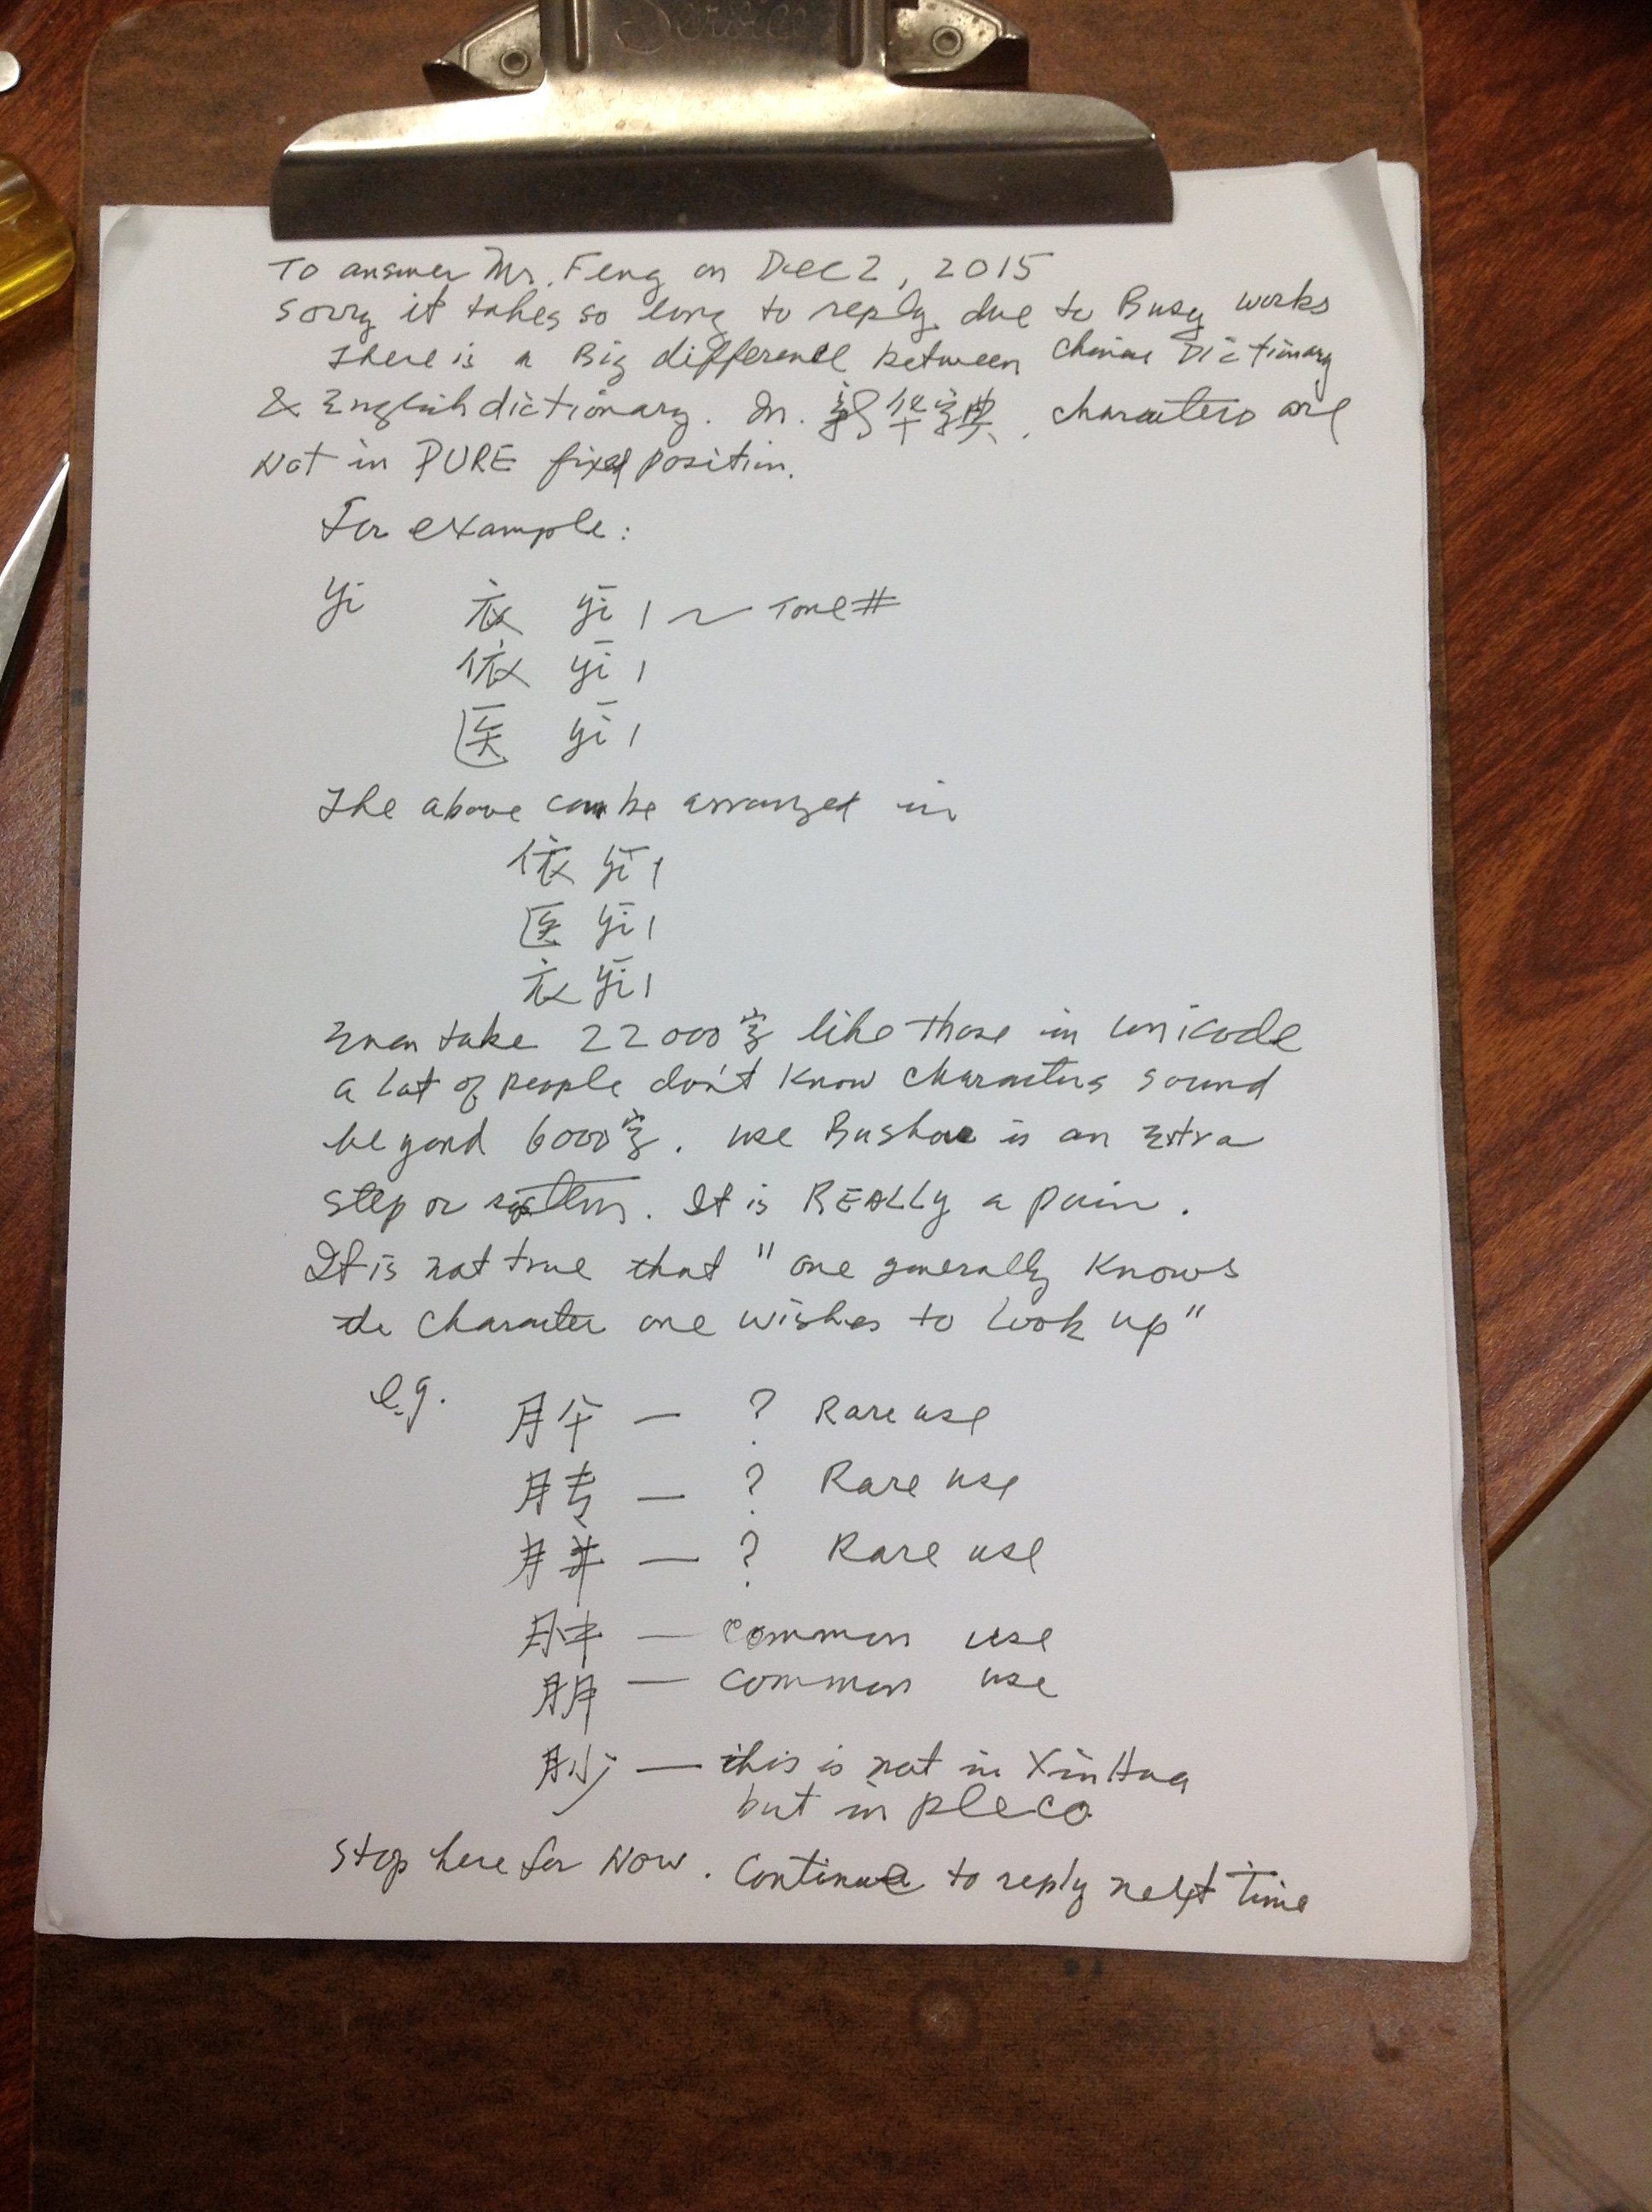 Service
To answer Mr. Feng on Dec 2, 2015
Sorry it takes so long to reply due to Busy works
There is a Big difference between Chinese Dictionary
& English dictionary. In 新华字典, characters are
Not in PURE fixed position.
For example:
yi 衣 yī 1 ~ Tone #
依 yī 1
医 yī 1
The above can be arranged in
依 yī 1
医 yī 1
衣 yī 1
Even take 22000字 like those in unicode
a lot of people don't know characters sound
beyond 6000字. use Bushou is an Extra
step or system. It is REALLY a pain.
It is not true that "one generally knows
the character one wishes to look up"
e.g. 肸 — ? Rare use
— ? Rare use
胼 — ? Rare use
肿 — common use
朋 — common use
— this is not in XinHua
but in pleco
Stop here for Now. Continue to reply next time